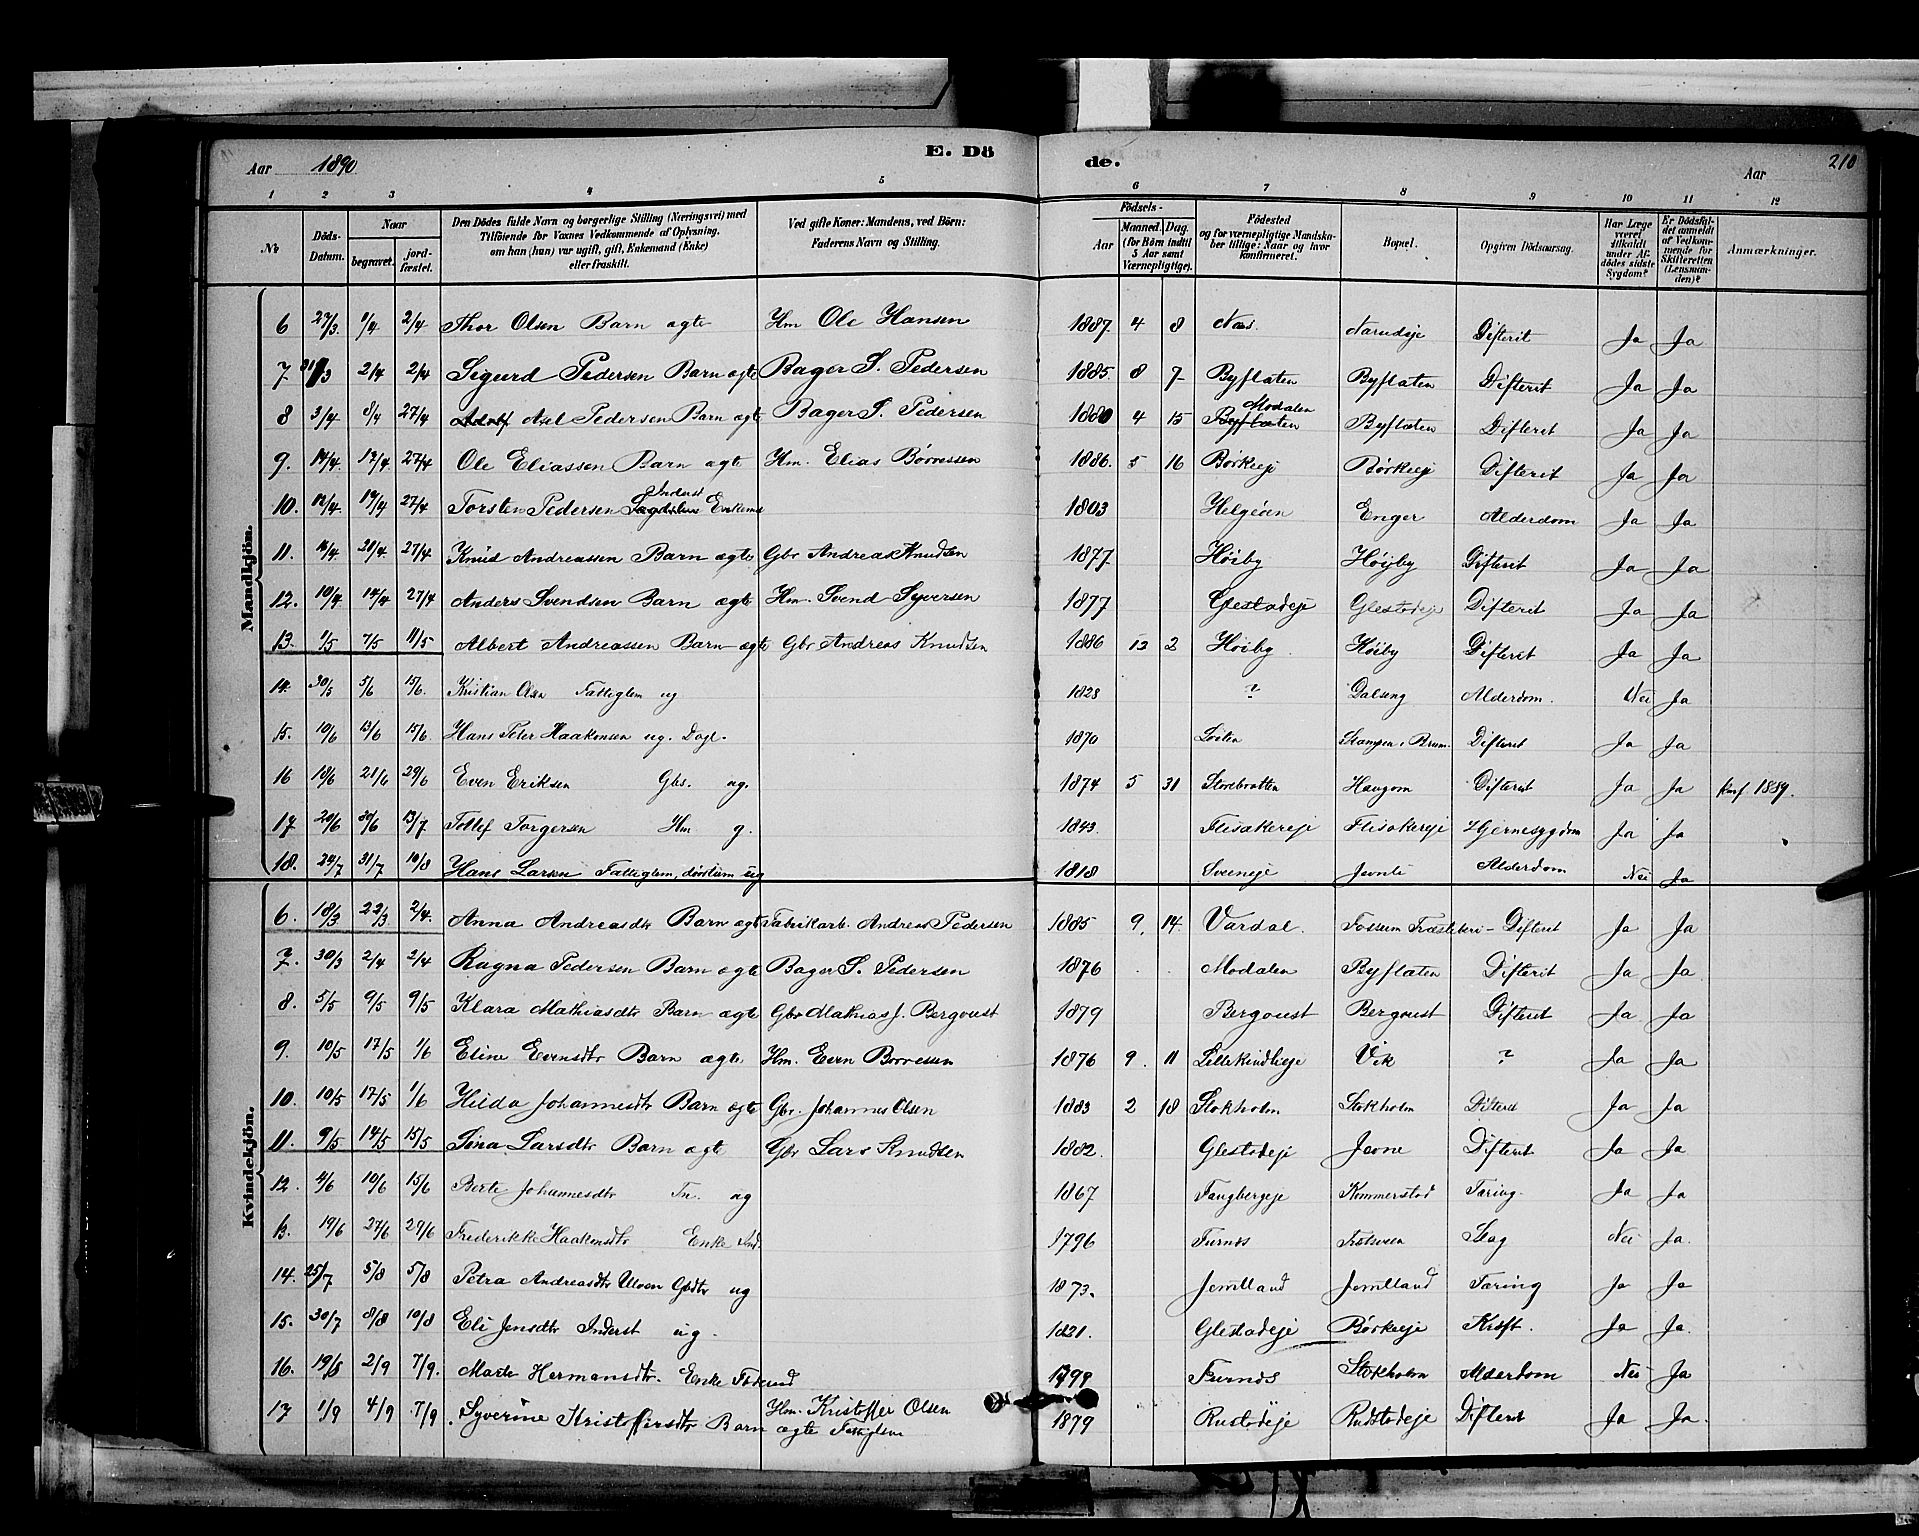 Aar 1890 E. Döde. Aar 210
1 2 3 4 5 6 7 8 9 10 11 12
№ Döds-Datum. Naar begravet. jordfæstet. Den Dödes fulde Navn og borgerlige Stilling (Næringsvei) med Tilföiende for Voxnes Vedkommende af Oplysning, om han (hun) var ugift, gift, Enkemand (Enke) eller fraskilt. Ved gifte Koner: Mandens, ved Börn: Faderens Navn og Stilling. Födsels- Aar Maaned. Dag. (for Börn indtil 5 Aar samt Værnepligtige). Födested og for værnepligtige Mandskaber tillige: Naar og hvor konfirmeret. Bopæl. Opgiven Dödsaarsag. Har Læge været tilkaldt under Afdödes sidste Sygdom? Er Dödsfaldet anmeldt af Vedkommende for Skifteretten (Lensmanden)? Anmærkninger.
Mandkjön.
6 27/3 1/4 2/4 Thor Olsen Barn ægte Hm Ole Hansen 1887 4 8 Næs Narudeje Difterit Ja Ja
7 31/3 2/4 2/4 Sigurd Pedersen Barn ægte Bager S. Pedersen 1885 8 7 Byflaten Byflaten Difterit Ja Ja
8 3/4 8/4 27/4 Adolf Axel Pedersen Barn ægte Bager S. Pedersen 1880 4 15 Byflaten Modalen Byflaten Difterit Ja Ja
9. 14/4 17/4 27/4 Ole Eliassen Barn ægte Hm. Elias Børresen 1886 5 16 Børkeeje Børkeeje Difterit Ja Ja
10. 12/4 19/4 27/4 Torsten Pedersen Inderst Enkemd 1803 Helgøen Enger Alderdom Ja Ja
11. 14/4 21/4 27/4 Knud Andreassen Barn ægte Gbr Andreas Knudsen 1877 Høiby Høiby Difterit Ja Ja
12. 10/4 14/4 27/4 Anders Svendsen Barn ægte Hm. Svend Syversen 1877 Glestadeje Glestadeje Difterit Ja Ja
13. 1/5 7/5 11/5 Albert Andreassen Barn ægte Gbr Andreas Knudsen 1886 12 2 Høiby Høiby Difterit Ja Ja
14. 30/5 5/6 15/6. Kristian Olsen Fattiglem ug 1823 ? Dalseng Alderdom. Nei Ja
15. 10/6 13/6 15/6. Hans Peter Haakensen ug. Dagl. 1870 Løiten Stampen i Brum. Difterit Ja Ja
16 18/6 21/6 29/6 Even Eriksen Gbs. ug. 1874 5 31 Storebraatten Haugom Difterit Ja Ja konf 1889.
17 20/6 30/6 13/7 Tollef Torgersen Hm g. 1843 Flisakereje Flisakereje Hjernesygdom Ja Ja
18. 24/7 31/7 10/8 Hans Larsen Fattiglem, døvstum ug 1818 Sveneje Jevnli Alderdom Nei Ja
Kvindekjön.
6. 18/3 22/3 2/4. Anna Andreasdtr Barn ægte Fabrikarb. Andreas Pedersen 1885 9. 14 Vardal. Fossum Træsliberi Difterit Ja Ja
7. 30/3 2/4 2/4 Ragna Pedersen Barn ægte Bager S. Pedersen 1876 Modalen Byflaten Difterit Ja Ja
8. 5/5 9/5 9/5 Klara Mathiasdtr Barn ægte Gbr Mathias J. Bergoust 1879 Bergoust Bergoust Difterit Ja Ja
9. 10/5 17/5 1/6 Eline Evensdtr Barn ægte Hm. Even Børresen 1876 9. 11 Lillekindlieje Vik ? Ja Ja
10. 10/5 17/5 1/6 Hilda Johannesdtr Barn ægte Gbr. Johannes Olsen 1883 2 18 Stokholm Stokholm Difterit Ja Ja
11. 9/5 14/5 15/5 Sina Larsdtr Barn ægte Gbr Lars Knudsen 1882 Glestadeje Jevne Difterit Ja Ja
12. 4/6 10/6 15/6 Berte Johannesdtr Tn. ug 1867 Fangbergeje Kommerstad Tæring. Ja Ja
13. 19/6 27/6 29/6 Frederikke Haakensdtr Enke Ind. 1796 Furnes Slag Nei Ja.
14. 25/7 5/8 5/8 Petra Andreasdtr Ulven Gbdtr ug 1873. Jemtland Jemtland Tæring Ja Ja
15. 30/7 8/8 10/8 Eli Jensdtr Inderst ug. 1821. Glestadeje Børkeeje Kræft. Ja Ja.
16. 19/8 2/9 7/9. Marte Hermansdtr. Enke Føderaad 1799 Furnes Stokholm Alderdom Nei Ja
17 1/9 4/9 7/9. Syverine Kristoffersdtr Barn ægte Hm. Kristoffer Olsen Fattiglem 1879 Rustadeje Rudstadeje Difterit Ja Ja